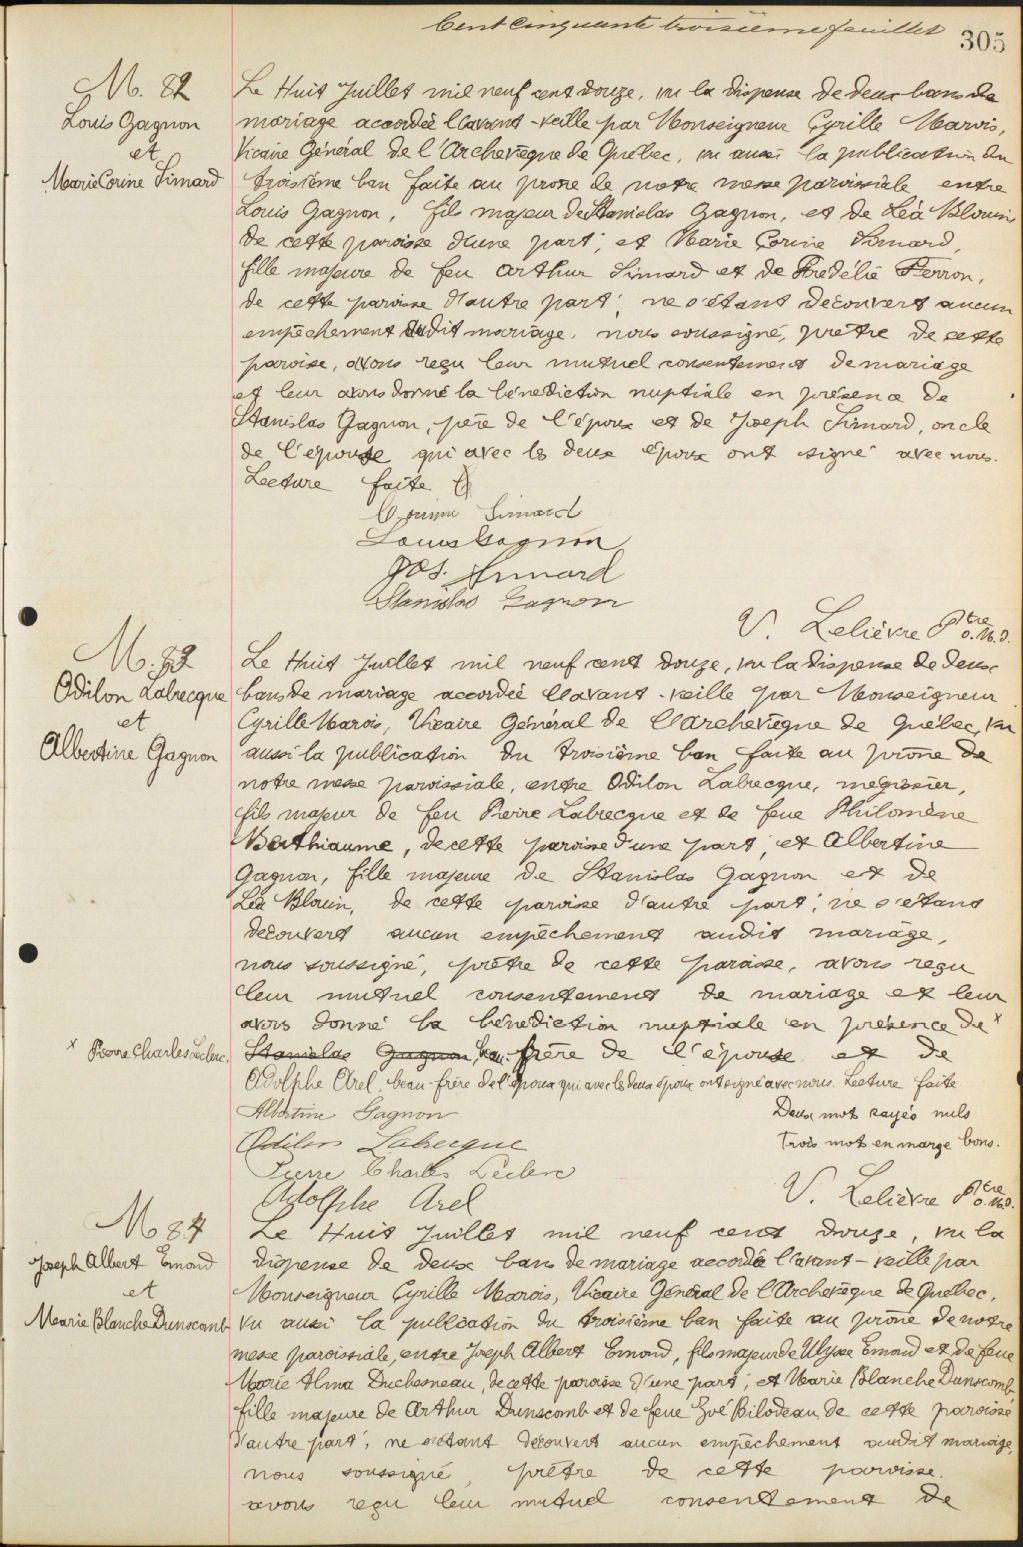 Cent cinquante troisième feuillet
305
M. 82
Louis Gagnon
et
Marie Corine Simard
Le Huit Juillet mil neuf cent douze, vu la dispense de deux bans de
mariage accordée l'avant-veille par Monseigneur Cyrille Marois,
Vicaire Général de l'Archevêque de Québec, vu aussi la publication du
troisième ban faite au prône de notre messe paroissiale entre
Louis Gagnon, fils majeur de Stanislas Gagnon, et de Léa Blouin
de cette paroisse d'une part; et Marie Corine Simard,
fille majeure de feu Arthur Simard et de Fredélie Ferron,
de cette paroisse d'autre part; ne s'étant découvert aucun
empêchement audit mariage, nous soussigné, prêtre de cette
paroisse, avons reçu leur mutuel consentement de mariage
et leur avons donné la bénédiction nuptiale en présence de
Stanislas Gagnon, père de l'époux et de Joseph Simard, oncle
de l'épouse qui avec les deux époux ont signé avec nous.
Lecture faite
Corinne Simard
Louis Gagnon
Jos. Simard
Stanislas Gagnon
V. Lelièvre Ptre
O.M.I.
M. 83
Odilon Labrecque
et
Albertine Gagnon
Le Huit Juillet mil neuf cent douze, vu la dispense de deux
bans de mariage accordée l'avant-veille par Monseigneur
Cyrille Marois, Vicaire Général de l'Archevêque de Québec, vu
aussi la publication du troisième ban faite au prône de
notre messe paroissiale, entre Odilon Labrecque, mégissier,
fils majeur de feu Pierre Labrecque et de feue Philomène
Berthiaume, de cette paroisse d'une part; et Albertine
Gagnon, fille majeure de Stanislas Gagnon et de
Léa Blouin, de cette paroisse d'autre part; ne s'étant
découvert aucun empêchement audit mariage,
nous soussigné, prêtre de cette paroisse, avons reçu
leur mutuel consentement de mariage et leur
avons donné la bénédiction nuptiale en présence de x
x Pierre Charles Leclerc,
Stanislas Gagnon, beau-frère de l'épouse et de
Adolphe Arel, beau-frère de l'époux qui avec les deux époux ont signé avec nous. Lecture faite
Albertine Gagnon
Deux mot rayés nuls
Odilon Labrecque
Trois mot en marge bons.
Pierre Charles Leclerc
Adolphe Arel
V. Lelièvre Ptre
O.M.I.
M 84
Joseph Albert Emond
et
Marie Blanche Dunscomb
Le Huit Juillet mil neuf cent douze, vu la
dispense de deux bans de mariage accordée l'avant-veille par
Monseigneur Cyrille Marois, Vicaire Général de l'Archevêque de Québec,
vu aussi la publication du troisième ban faite au prône de notre
messe paroissiale, entre Joseph Albert Emond, fils majeur de Ulysse Emond et de feue
Marie Alma Duchesneau, de cette paroisse d'une part; et Marie Blanche Dunscomb,
fille majeure de Arthur Dunscomb et de feue Zoé Bilodeau, de cette paroisse
d'autre part; ne s'étant découvert aucun empêchement audit mariage,
nous soussigné, prêtre de cette paroisse,
avons reçu leur mutuel consentement de